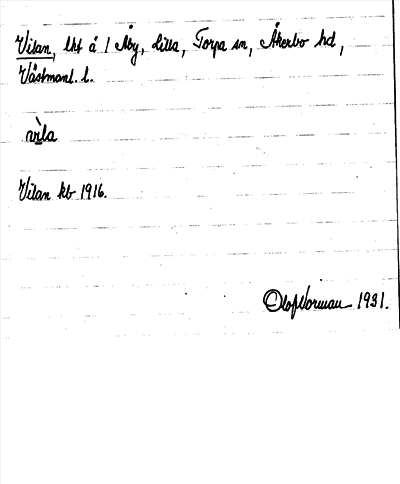 Vilan, lht å 1 Åby, Lilla, Torpa sn, Åkerbo hd,
Västmanl. l.
vìla
Vilan kb 1916.
Olof Norman 1931.